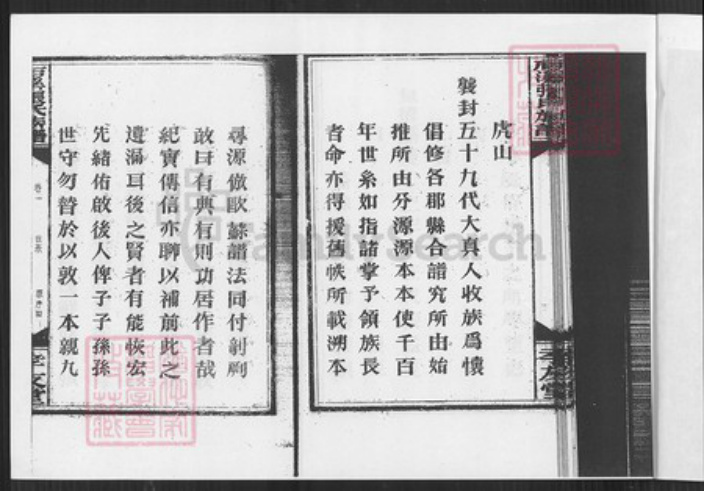 虎山
襲封五十九代大真人收族爲懷
倡修各郡縣合譜究所由始
推所由分源源本本使千百
年世系如指諸掌予領族長
者命亦得援舊帙所載溯本
尋源倣歐蘇譜法同付剞劂
敢曰有典有則功居作者哉
紀實傳信亦聊以補前此之
遺漏耳後之賢者有能恢宏
先緒佑啟後人俾子子孫孫
世守勿替於以敦一本親九
卷一
孝友堂
FamilySearch